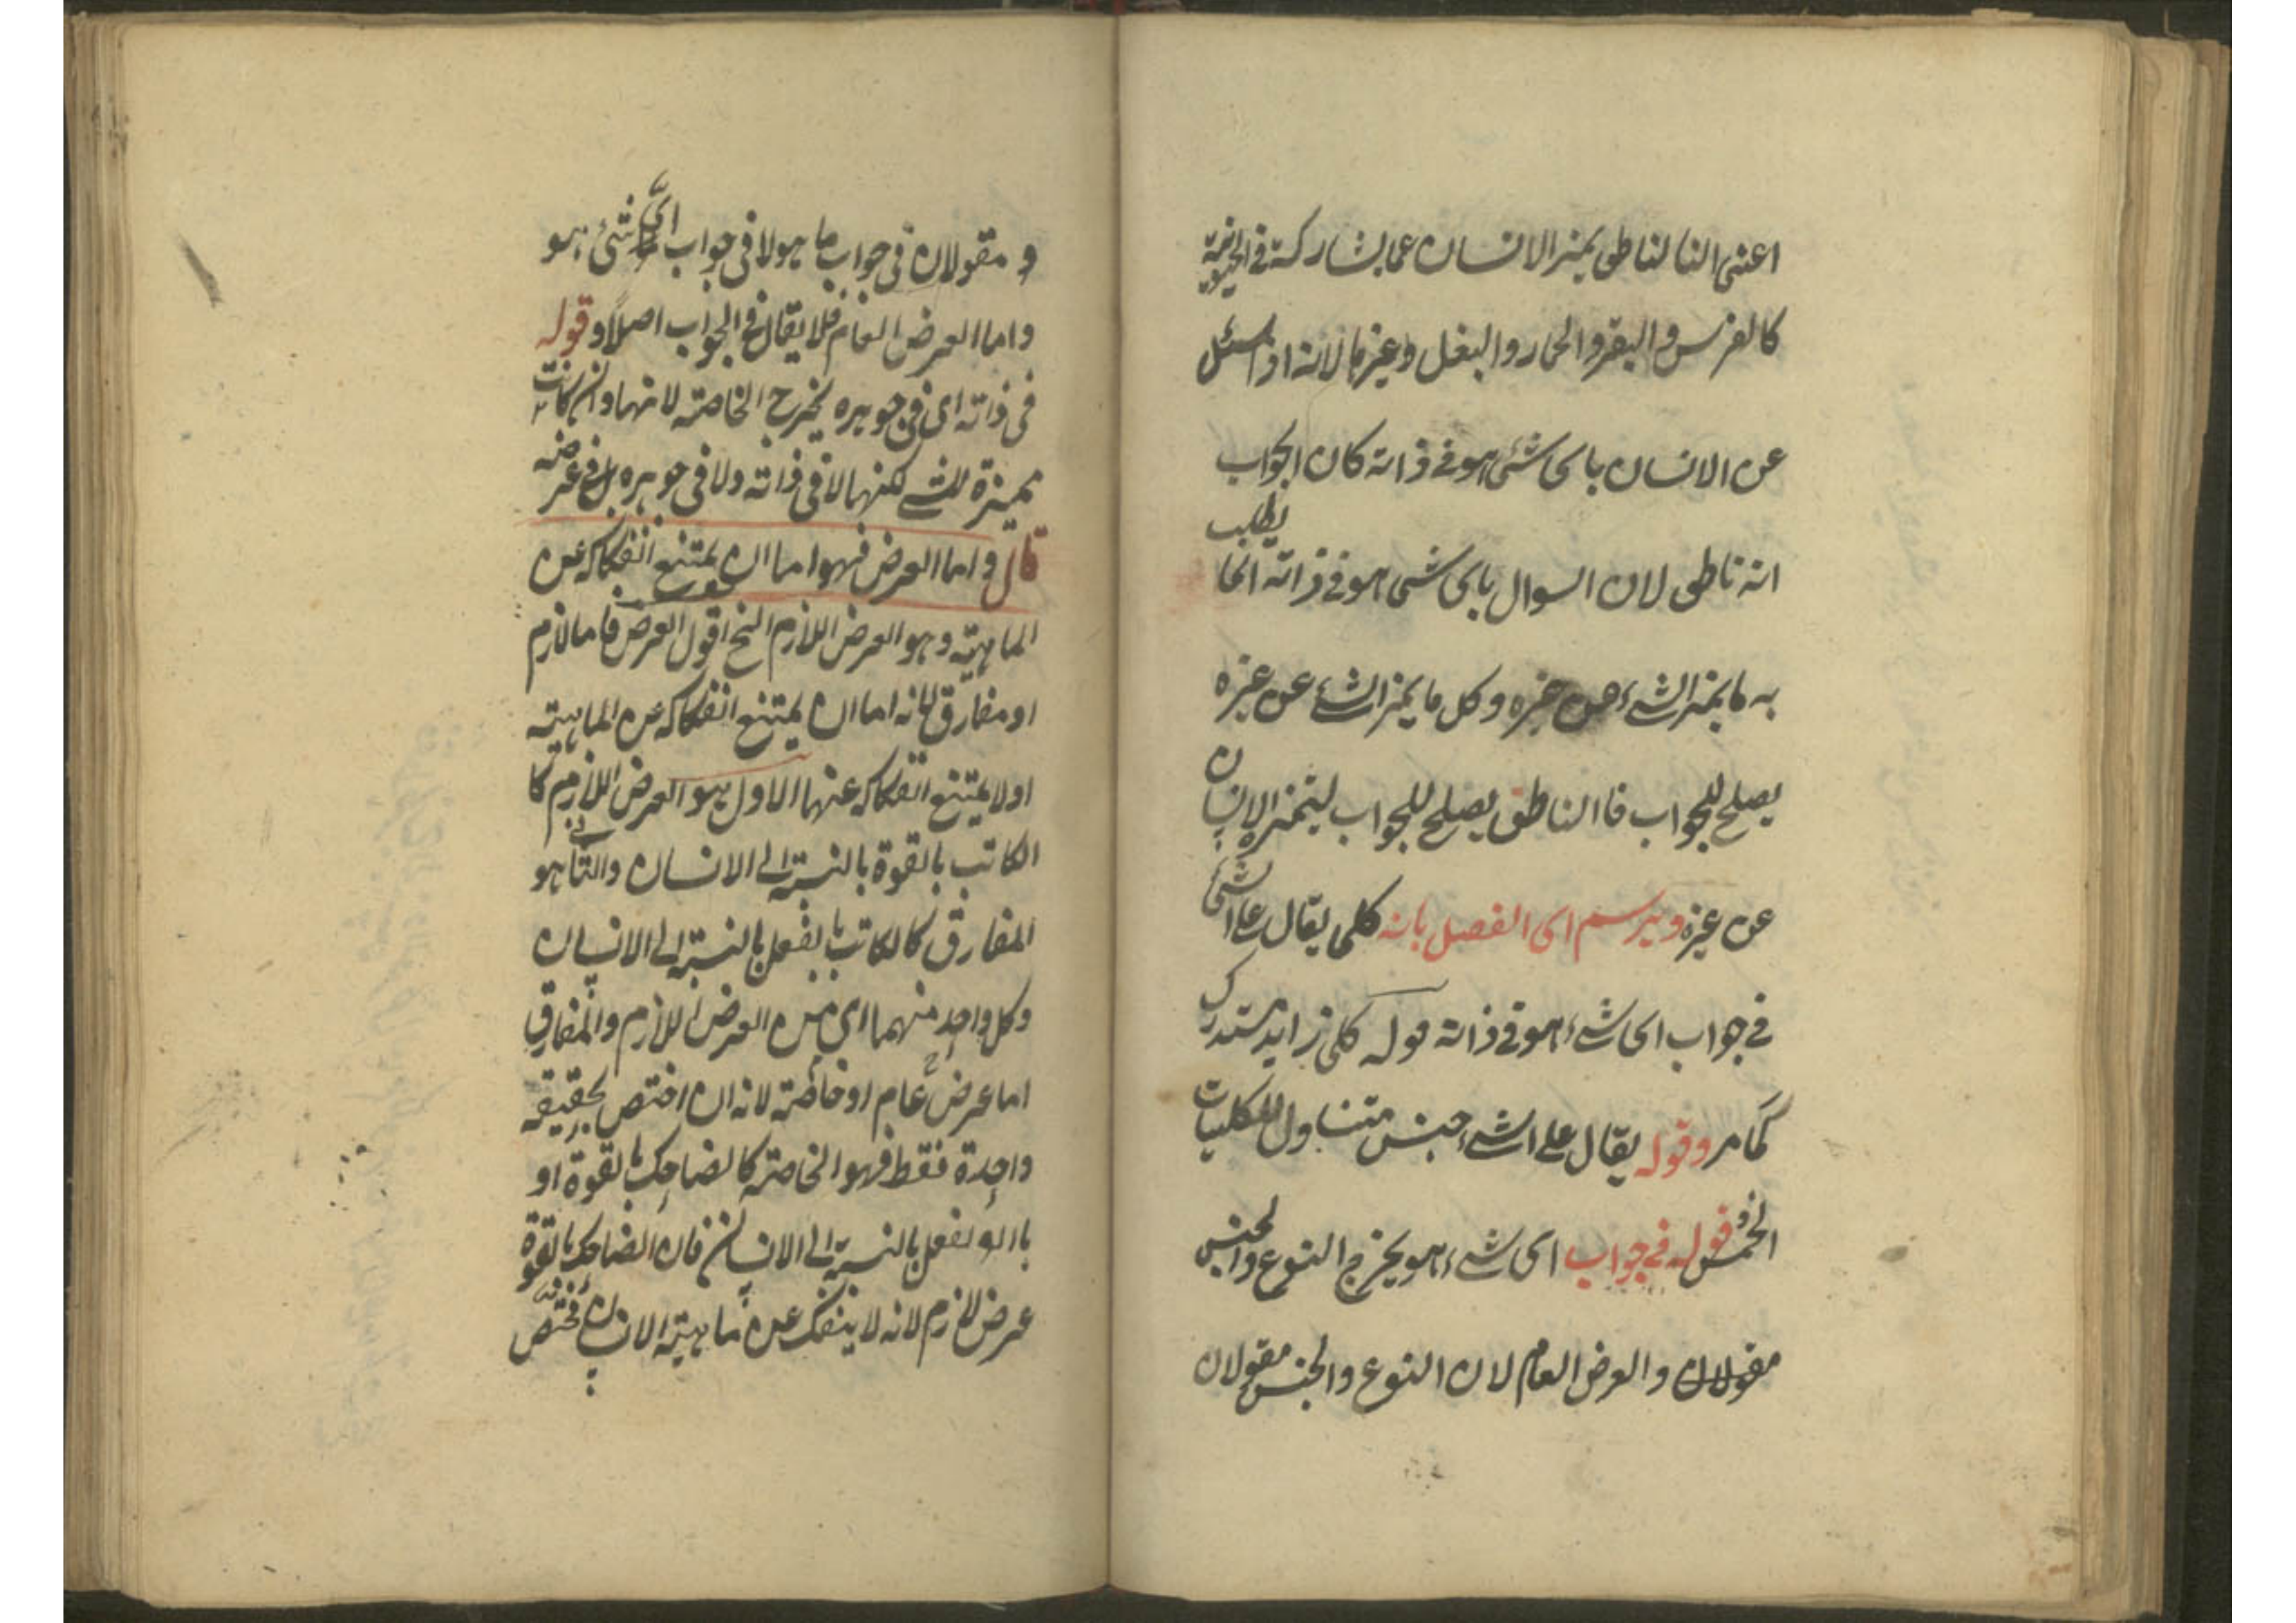 اعنى النا لناطق يميز الانسان عما يشاركه في الحيوانية
كالفرس والبقر والحمار والبغل وغيرها لانه اذا سئل
عن الانسان باى شئ هو في ذاته كان الجواب
انه ناطق لان السوال باى شئ هو في ذاته انما يطلب
به ما يميز الشئ عن غيره وكل ما يميز الشئ عن غيره
يصلح للجواب فا الناطق يصلح للجواب ليتميز الانسان
عن غيره ويرسم اى الفصل بانه كلى يقال على الشئ
في جواب اى شئ هو في ذاته قوله كلى زايد مستدرك
كما مر وقوله يقال على الشئ جنس متناول للكليات
الخمس وقوله في جواب اى شئ هو يخرج النوع والجنس
مقولان والعرض العام لان النوع والجنس مقولان
و مقولان فى جواب ما هو لا فى جواب اىّ شئ هو
واما العرض العام فلا يقال فى الجواب اصلًا و قوله
فى ذاته اى فى جوهره يخرج الخاصته لانها وان كانت
مميزة للشئ لكنها لا فى ذاته ولا فى جوهره بل فى عرضه
قال واما العرض فهو اما ان يمتنع انفكاكه عن
الماهيّته وهو العرض اللازم الخ اقول العرض فاما لازم
او مفارق لانه اما ان يمتنع انفكاكه عن الماهيته
اولا يمتنع انفكاكه عنها الاول هو العرض اللازم كا
الكاتب بالقوة بالنسبته الى الانسان والثانى هو
المفارق كالكاتب بالفعل بالنسبته الى الانسان
وكل واحد منهما اى من العرض اللازم والمفارق
اما عرض عام او خاصّته لانه ان اختص بحقيقه
واحدة فقط فهو الخاصته كالضاحك بالقوة او
بالفعل بالنسبته الى الانسان فان الضاحك بالقوة
عرض لازم لانه لا ينفك عن ماهيته الانسان مختص